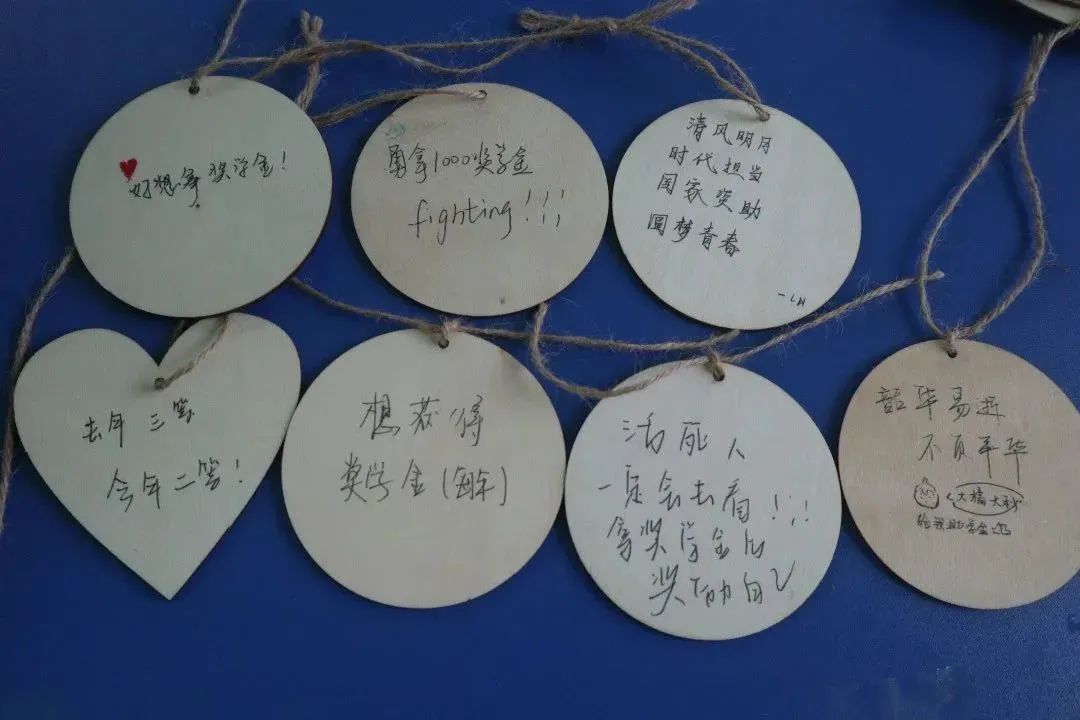 好想拿奖学金!
勇拿1000奖学金
fighting!!!
清风明月
时代担当
国家资助
圆梦青春
去年三等
今年二等!
想获得
奖学金(每年)
活死人
一定会去看!!!
拿奖学金后
奖励自己
韶华易逝
不负年华
大橘大利
给我助学金吧